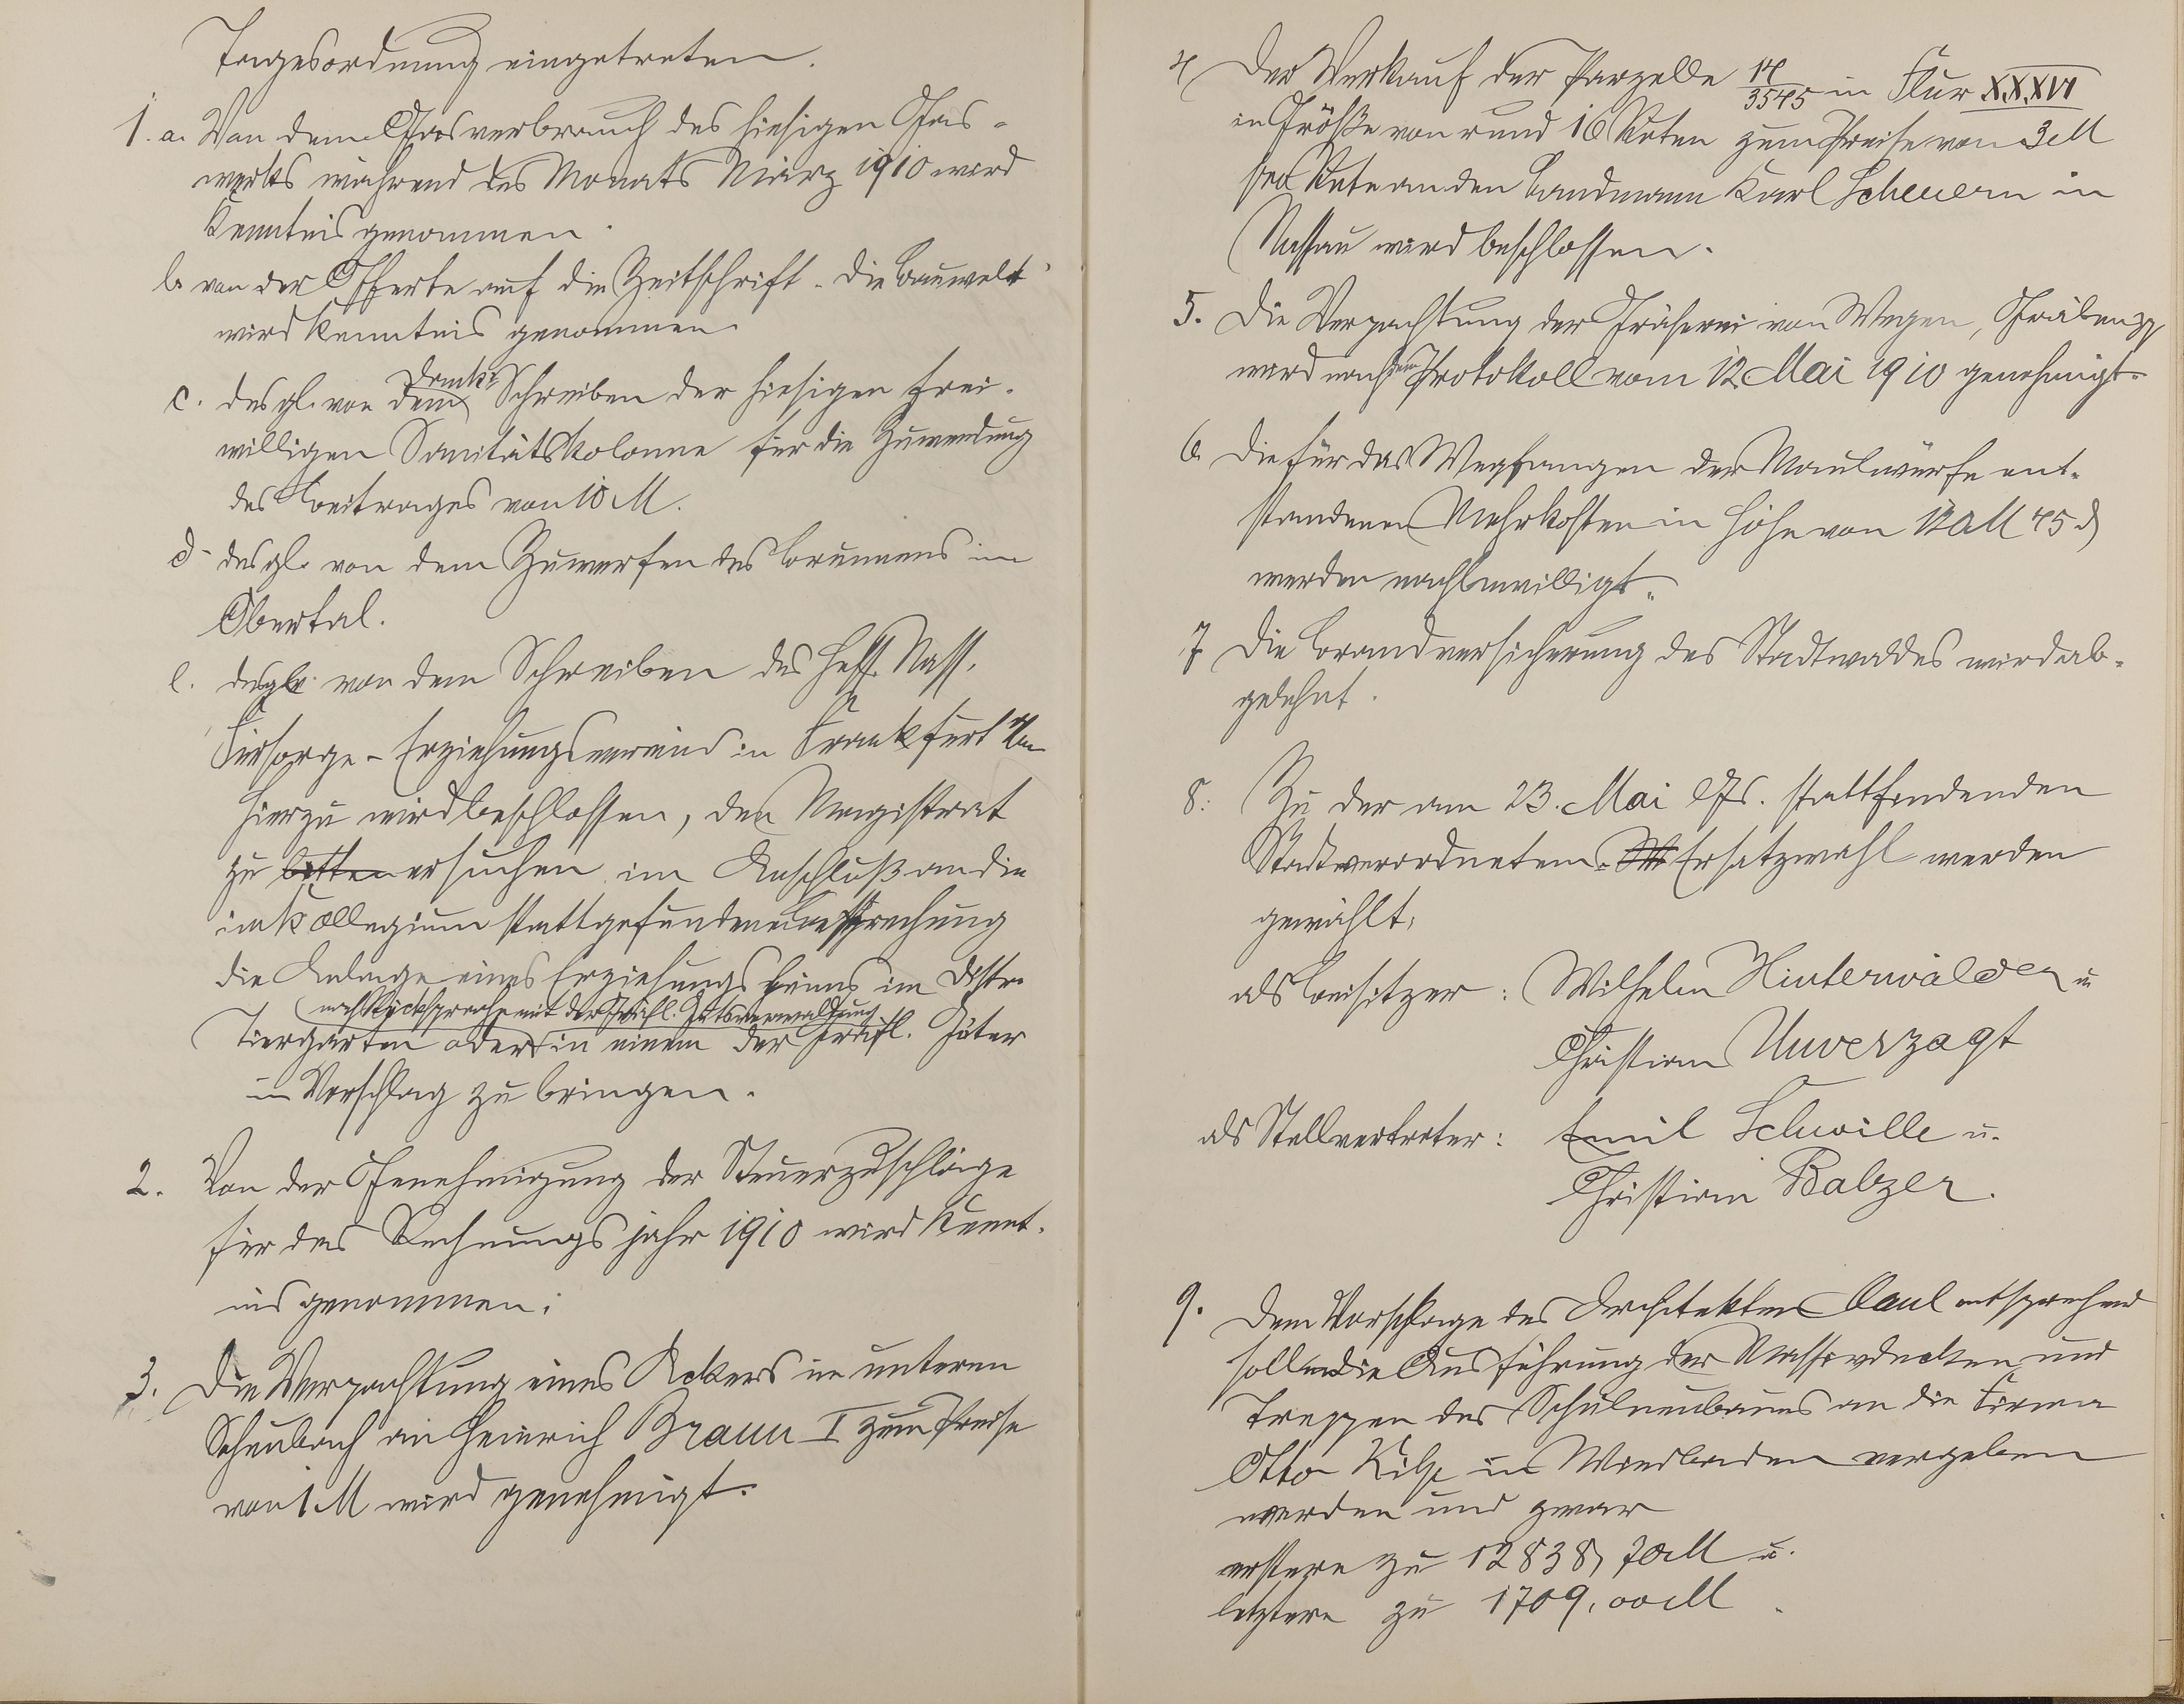 Tagesordnung eingetreten.
1. a. Von dem Gasverbrauch des hiesigen Gas-
werks während des Monats März 1910 wird
Kenntnis genommen.
b. von der Offerte auf die Zeitschrift „Die Bauwelt“
wird Kenntnis genommen.
c. desgl. von dem Dank- Schreiben der hiesigen frei-
willigen Sanitätskolonne für die Zuwendung
des Beitrages von 10 M.
d. desgl. von dem Zuwerfen des Brunnens im
Obertal.
e. desgl. von dem Schreiben des Hess. Nass.
Fürsorge-Erziehungsvereins in Frankfurt a/M
Hierzu wird beschlossen, den Magistrat
zu bitten ersuchen im Anschluß an die
im Kollegium stattgefundene Besprechung
die Anlage eines Erziehungsheims im Distr.
nach Rücksprache mit der Gräfl. Gutsverwaltung
Tiergarten oder in einem der Gräfl. Güter
in Vorschlag zu bringen.
2. Von der Genehmigung der Steuerzuschläge
für das Rechnungsjahr 1910 wird Kennt-
nis genommen.
3. Die Verpachtung eines Ackers im unteren
Scheubach an Heinrich Braun I zum Preise
von 1 M wird genehmigt.
4 Der Verkauf der Parzelle 14/3545 in Flur XXXVI
in Größe von rund 16 Ruten zum Preise von 3 M
pro Rute an den Landmann Karl Scheuern in
Nassau wird beschlossen.
5. Die Verpachtung der Gräserei von Wegen, Gräben pp
wird nach dem Protokoll vom 12. Mai 1910 genehmigt.
6. Die für das Wegfangen der Maulwürfe ent-
standenen Mehrkosten in Höhe von 12 M 45 ₰
werden nachbewilligt.
7 Die Brandversicherung des Stadtwaldes wird ab-
gelehnt.
8. Zu der am 23. Mai ds. Js. stattfindenden
Stadtverordneten-Ersatzwahl werden
gewählt,
als Beisitzer: Wilhelm Hinterwälder u
Christian Unverzagt
als Stellvertreter: Emil Schwille u.
Christian Balzer.
9. Dem Vorschlage des Architekten Paul entsprechend
sollen die Ausführung der Massivdecken und
Treppen des Schulneubaues an die Firma
Otto Kilp in Wiesbaden vergeben
werden und zwar
erstere zu 12838,70 M u.
letztere zu 1709,00 M.